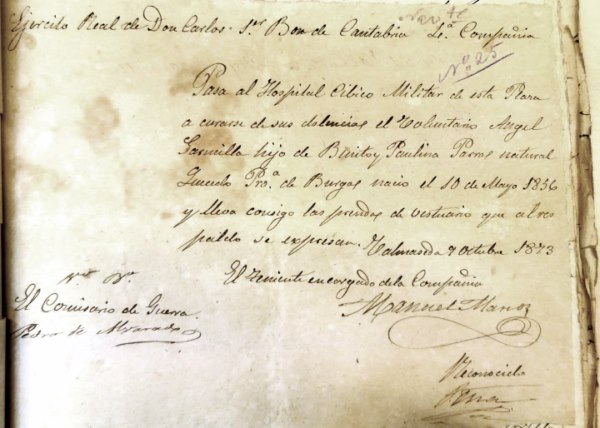 Ejercito Real de Don Carlos. 1.er Bon de Cantabria 4.a Compañia
Nº 25
Pasa al Hospital Cibico Militar de esta Plaza
a curarse de sus dolencias el Voluntario Angel
hijo de Benito y Paulina Parras natural
Pro.a de Burgos nacio el 10 de Mayo 1856
y lleva consigo las prendas de vestuario que al res
paldo se expresan. Valmaseda 7 Octubre 1873
El Teniente encargado de la Compañia
Manuel
Vº Bº
El Comisario de Guerra
Pedro de
Reconocido